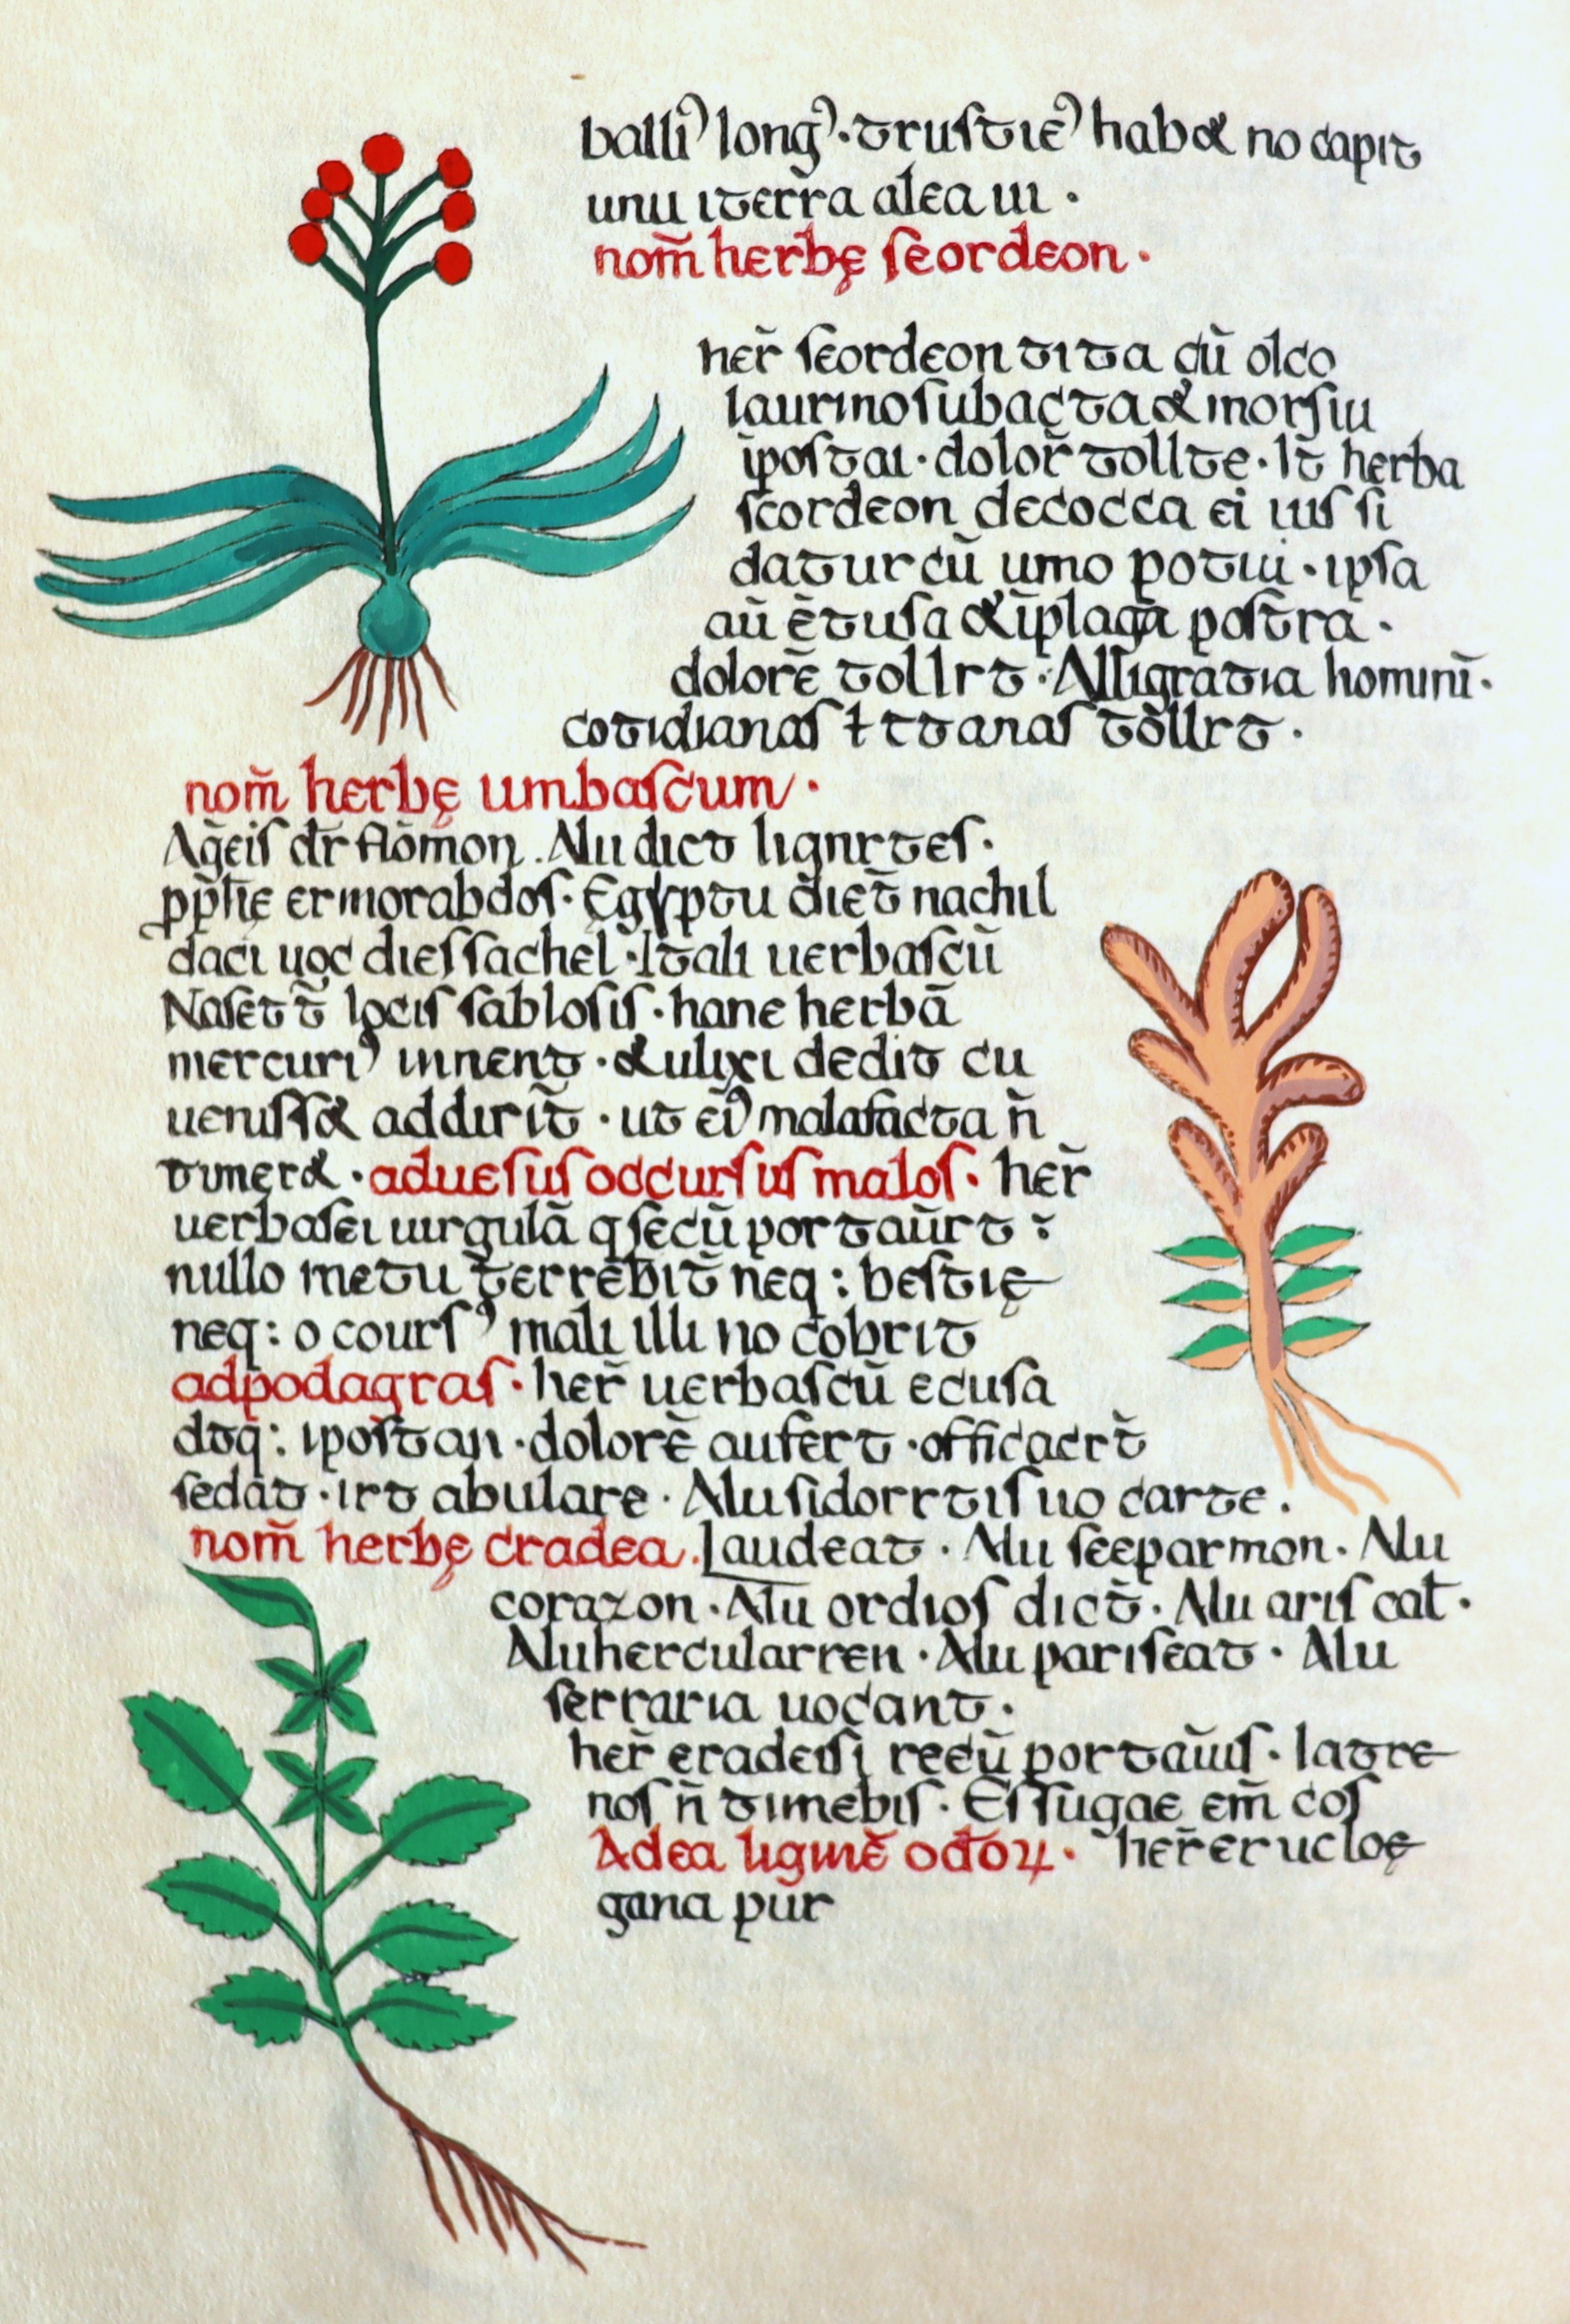 balliꝰ longꝰ · trustiēꝰ hab& no capit
unu iterra alea iii ·
nom̄ herbę seordeon ·
her̄ seordeon tita cū olco
laurino subacta & morsiu
īpostai · dolor̄ tollte · It̄ herba
scordeon decocca ei ius si
datur cū umo potui · ipsa
aū ētusa & īplagā postrā ·
dolorē tollrt · Alligratia hominī ·
cotidianas ł ttanas tollrt ·
nom̄ herbę umbascum ·
Aḡeis dr̄ flōmon . Alii dict lignrtes ·
pp̄hę ermorabdos · Ęgyptu diet̄ nachil
daci uoc dies sachel · Itali uerbascū
Naset t̄ locis sablosis · hane herbā
mercuriꝰ innent · & ulixi dedit cu
ueniss& addirit̄ · ut eiꝰ malafacta n̄
timer& · aduesus occursus malos · her̄
uerbasei uirgulā q secū portaūrt :
nullo metu terrebit̄ neq : bestię
neq : o coursꝰ mali illi no cobrit
adpodagras · her̄ uerbascū ecusa
dtq : ipostan · dolorē aufert · officacrt̄
sedat · irt abulare · Alu sidorrtis uo carte .
nom̄ herbę cradea . Laudeat · Alu seeparmon · Alu
corazon · Alu ordios dict̄ · Alu aris cat ·
Alu hercularren · Alu pariseat · Alu
serraria uocant ·
her̄ eradeisi recū portaūis · latre
nos n̄ timebis · Et sugae em̄ cos
Adea liginē odoꝝ · her̄ erucloę
gana pur